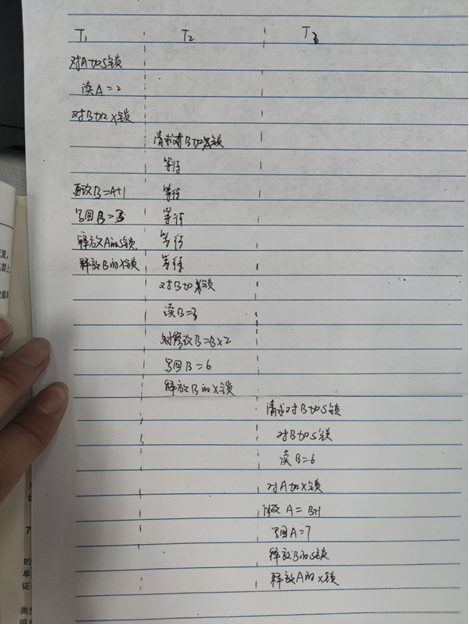 T1 T2 T3
对A加S锁
读A=2
对B加X锁
请求对B加X锁
等待
修改B=A+1 等待
写回B=3 等待
释放A的S锁 等待
释放B的X锁 等待
对B加X锁
读B=3
修改B=B×2
写回B=6
释放B的X锁
请求对B加S锁
对B加S锁
读B=6
对A加X锁
修改A=B+1
写回A=7
释放B的S锁
释放A的X锁
7
的
单
证
类